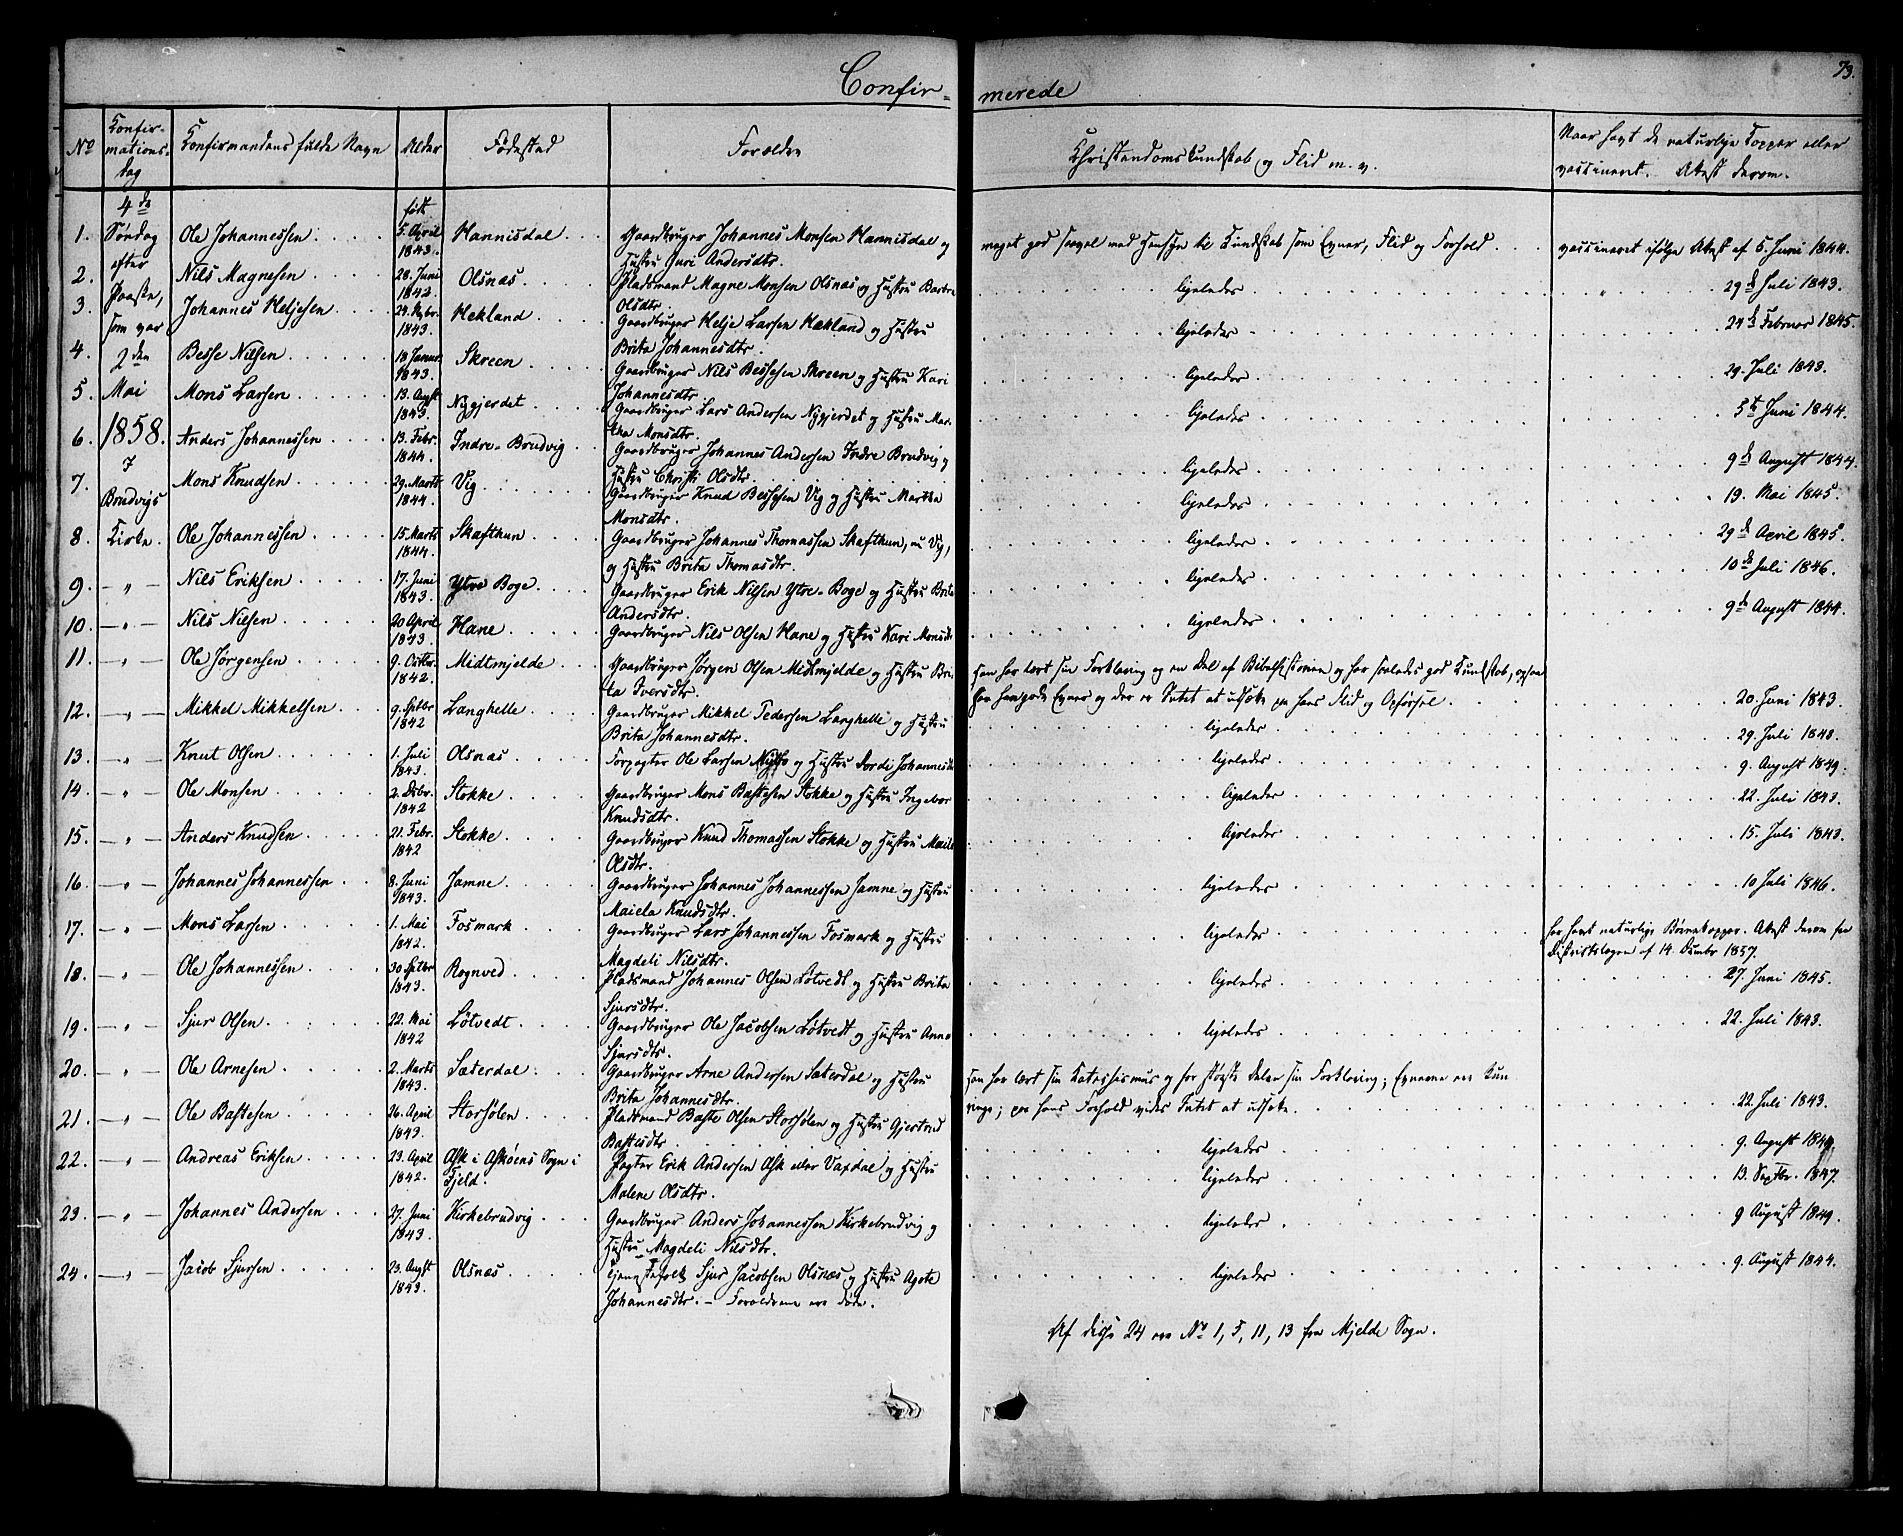 73.
Confir- merede
No
Confir-
mations-
dag
Confirmandens fulde Navn
Alder
Fødested
Forældre
Christendoms Kundskab og Flid m. v.
Naar havt de naturlige Kopper eller
vaccineret. Attest derom.
4de
Søndag
efter
Paaske,
som var
2den
Mai
1858.
i
Brudvigs
Kirke.
1. Ole Johannessen født 5. April 1843. Hannisdal Gaardbruger Johannes Monsen Hannisdal og
Hustru Guri Andersdtr. meget god saavel med Hensyn til Kundskab som Evner, Flid og Forhold vaccineret ifølge Attest af 6. Juni 1844.
2. Nils Magnesen 28. Juni 1842. Olsnæs Pladsmand Magne Monsen Olsnæs og Hustru Barbra
Olsdtr. ligeledes 29de Juli 1843.
3. Johannes Heljesen 1843. Hekland Gaardbruger Helje Larsen Hækland og Hustru
Brita Johannesdtr. ligeledes 24de Februar 1845.
4. Besse Nilsen 18 Januar 1843. Skreen Gaardbruger Nils Bessesen Skreen og Hustru Kari
Johannesdtr. ligeledes 29. Juli 1843.
5. Mons Larsen 13. Augst 1843. Nygjerdet Gaardbruger Lars Andersen Nygjerdet og Hustru Mar-
tha Monsdtr. ligeledes 5te Juni 1844.
6. Anders Johannessen 13. Febr. 1844. Indre-Brudvig Gaardbruger Johannes Andersen Indre Brudvig og
Hustru Christi Olsdtr. ligeledes 9de August 1844.
7. Mons Knudsen 29. Marts 1844. Vig Gaardbruger Knud Bessesen Vig og Hustru Martha
Monsdtr. ligeledes 19. Mai 1845.
8. Ole Johannessen 15. Marts 1844. Skafthun Gaardbruger Johannes Thomassen Skafthun, nu Vig,
og Hustru Brita Thomasdtr. ligeledes 29de April 1845.
9. - " - Nils Eriksen 17. Juni 1843. Ytre Boge Gaardbruger Erik Nilsen Ytre-Boge og Hustru Brita
Andersdtr. ligeledes 10de Juli 1846.
10. - " - Nils Nilsen 20 April 1843. Hane Gaardbruger Nils Olsen Hane og Hustru Kari Monsdtr ligeledes 9de August 1844.
11. - " - Ole Jørgensen 9. Octbr. 1842. Midtmjelde Gaardbruger Jørgen Olsen Midtmjelde og Hustru Bri-
ta Iversdtr. Han har lært sin Forklaring og en Del af Bibelhistorien og har saaledes god Kundskab, ogsaa
har han gode Evner og der er Intet at udsætte paa hans Flid og Opførsel. 20. Juni 1843.
12. - " - Mikkel Mikkelsen 9. Septbr 1842 Langhelle Gaardbruger Mikkel Pedersen Langhelle og Hustru
Brita Johannesdtr. ligeledes 29. Juli 1843.
13. - " - Knut Olsen 1. Juli 1843. Olsnæs Forpagter Ole Larsen og Hustru Dorde Johannesdtr ligeledes 9. August 1849.
14. - " - Ole Monsen 2. Debr. 1842 Stokke Gaardbruger Mons Bastesen Stokke og Hustru Ingebor
Knudsdtr. ligeledes 22. Juli 1843.
15. - " - Anders Knudsen 21. Febr. 1842 Stokke Gaardbruger Knud Thomassen Stokke og Hustru
Olsdtr. ligeledes 15. Juli 1843.
16. - " - Johannes Johannessen 8. Juni 1843. Jamne Gaardbruger Johannes Johannessen Jamne og Hustru
Maiela Knudsdtr. ligeledes 10 Juli 1846.
17. - " - Mons Larsen 1. Mai 1842. Fosmark Gaardbruger Lars Johannessen Fosmark og Hustru
Magdeli Nilsdtr. ligeledes har havt naturlige Børnekopper. Attest derom fra
Districtslægen af 14. Decmbr 1857.
18. - " - Ole Johannessen 30 Septbr 1843. Rognved Pladsmand Johannes Olsen Løtvedt og Hustru Brita
Sjursdtr. ligeledes 27. Juni 1845.
19. - " - Sjur Olsen 22. Mai 1842 Løtvedt Gaardbruger Ole Jacobsen Løtvedt og Hustru Anna
Sjursdtr. ligeledes 22. Juli 1843.
20. - " - Ole Arnesen 2. Marts 1843. Sæterdal Gaardbruger Arne Andersen Sæterdal og Hustru
Brita Johannesdtr. Han har lært sin Katechismus og for største Delen sin Forklaring; Evnerne ere
ringe; paa hans Forhold vides Intet at udsætte. 22. Juli 1843.
21. - " - Ole Bastesen 26. April 1843. Storsølen Pladsmand Baste Olsen Storsølen og Hustru Gjertrud
Bastesdtr ligeledes 9. August 1849.
22. - " - Andreas Eriksen 23. April 1842. Ask i Askøens Sogn i
Fjeld. Pagter Erik Andersen Ask eller Vaxdal og Hustru
Malene Olsdtr. ligeledes 13. Septbr. 1847.
23. - " - Johannes Andersen 27. Juni 1843. Kirkebrudvig Gaardbruger Anders Johannessen Kirkebrudvig og
Hustru Magdeli Nilsdtr. ligeledes 9 August 1849.
24. - " - Jacob Sjursen 23. Augst 1843. Olsnæs Tjenestefolk Sjur Jacobsen Olsnæs og Hustru Agate
Johannesdtr. - Forældrene ere døde. ligeledes 9. August 1844.
Af disse 24 ere No 1, 5, 11, 13 fra Mjelde Sogn.